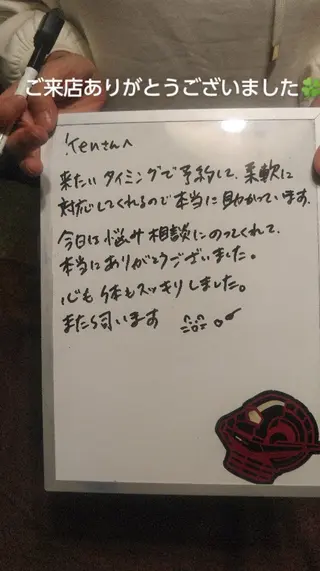 ご来店ありがとうございました🍀
Kenさんへ
来たいタイミングで予約して、柔軟に
対応してくれるので本当に助かっています.
今日は悩み相談にのってくれて、
本当にありがとうございました。
心も体もスッキリしました。
また伺います